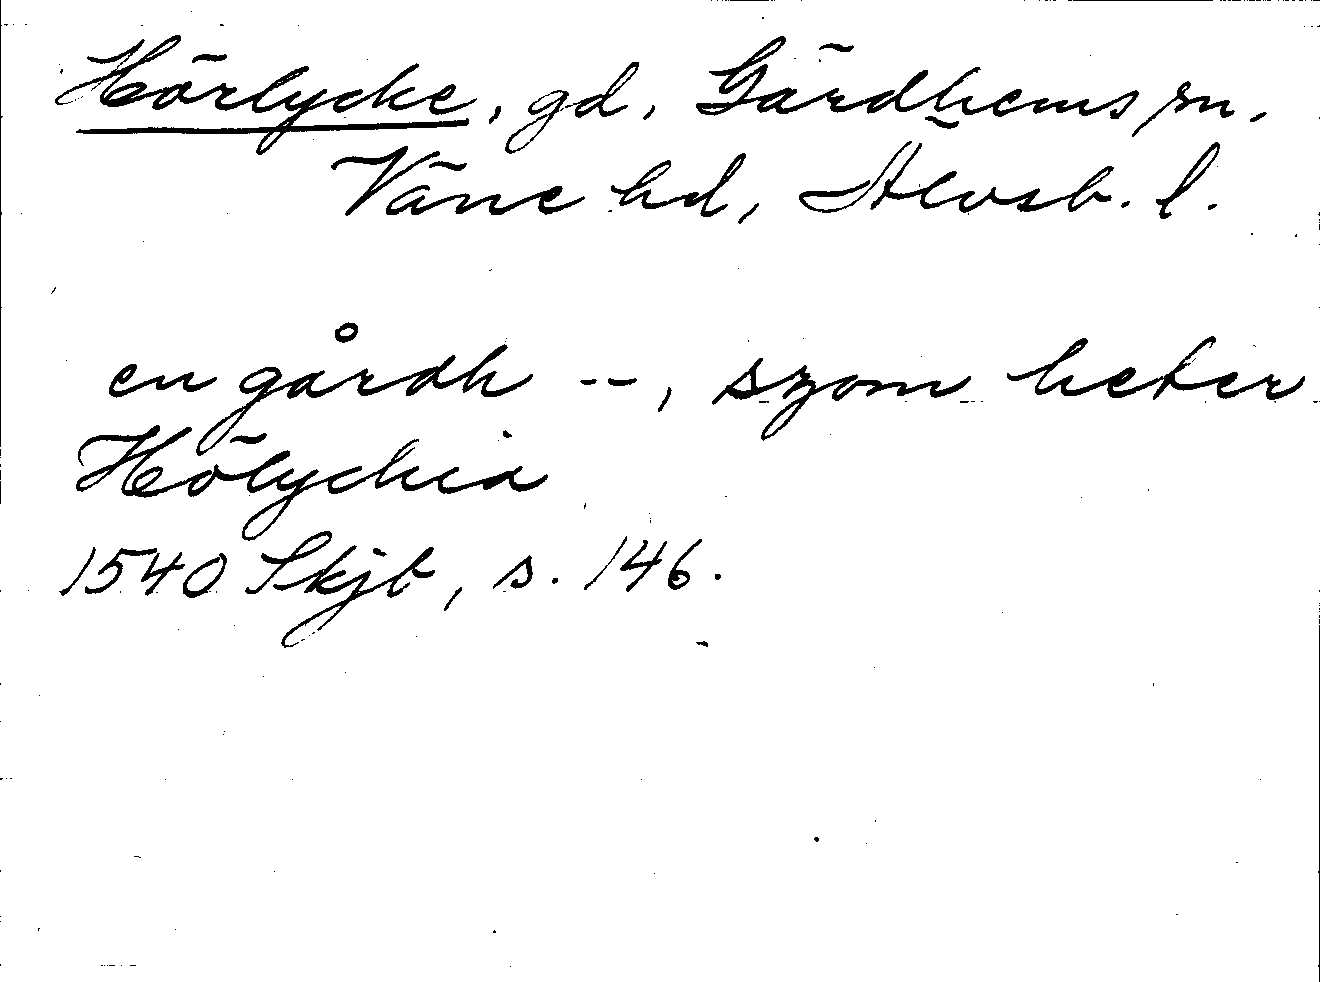 Hörlycke, gd, Gärdhems sn.
Väne hd, Älvsb. l.
en gårdh --, szom heter
Hölyckia
1540 Skjb, s. 146.